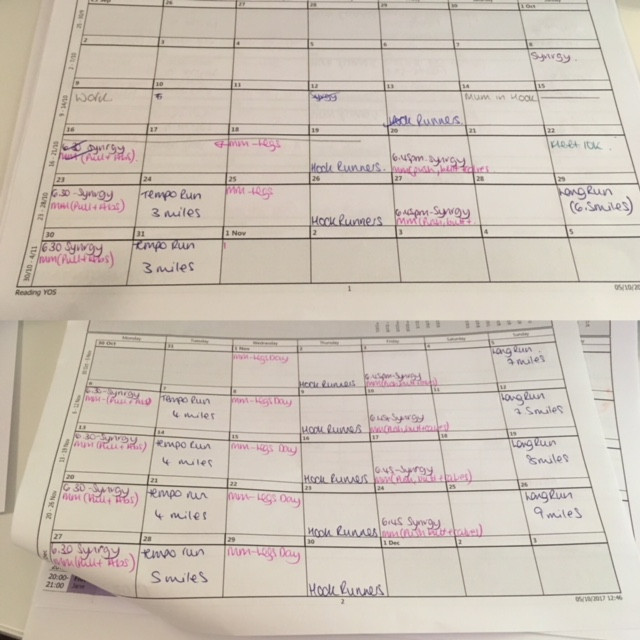 26
27
28
29
30
1 Oct
2
3
4
5
6
7
8
Synrgy.
2 - 8/10
9
10
11
12
13
14
15
Work
Mum in Hook
Hook Runners
9 - 15/10
16
17
18
19
20
21
22
6.30 Synrgy
MM (Pull + Abs).
MM - Legs
Hook Runners.
6.45pm - Synrgy
Fleet 10k.
16 - 22/10
23
24
25
26
27
28
29
6.30 - Synrgy
MM (Pull + Abs)
Tempo Run
3 miles
MM - Legs
Hook Runners
6.45pm - Synrgy
Long Run
(6.5 miles)
23 - 29/10
30
31
1 Nov
2
3
4
5
6.30 Synrgy
MM (Pull + Abs)
Tempo Run
3 miles
30/10 - 5/11
Reading YOS
1
Monday
Tuesday
Wednesday
Thursday
Friday
Saturday
Sunday
30 Oct
31
1 Nov
2
3
4
5
MM - Legs Day
Hook Runners
6.45pm - Synrgy
Long Run
7 miles
6
7
8
9
10
11
12
6.30 - Synrgy
MM - (Pull + Abs)
Tempo Run
4 miles
MM - Legs Day
Hook Runners
6.45 Synrgy
Long Run
7.5 miles
13
14
15
16
17
18
19
6.30 - Synrgy
MM (Pull + Abs)
Tempo Run
4 miles
MM - Legs Day
Hook Runners
6.45 - Synrgy
Long Run
8 miles
20
21
22
23
24
25
26
6.30 - Synrgy
MM (Pull + Abs)
Tempo run
4 miles
MM - Legs Day
Hook Runners
6.45 Synrgy
Long Run
9 miles
20 - 26 Nov
27
28
29
30
1 Dec
2
3
6.30 Synrgy
MM (Pull + Abs)
Tempo run
5 miles
MM - Legs Day
Hook Runners
20:00-
21:00
2
05/10/2017 12:46